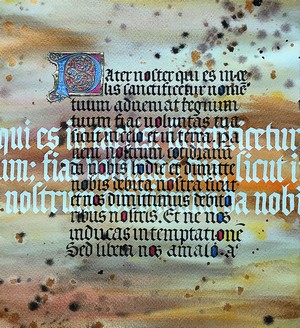 Pater noster qui es in ce
lis sanctificetur nomē
tuum adveniat regnum
tuum fiat voluntas tu a
sicut in celo et in terra pa
nem nostrum cotidianū
da nobis hodie et dimitte
nobis debita nostra sicut
et nos dimittimus debito
ribus nostris. Et ne nos
inducas in temptationē
Sed libera nos a malo. A
qui es in
um; fiat sicut i
nostrum a nobi